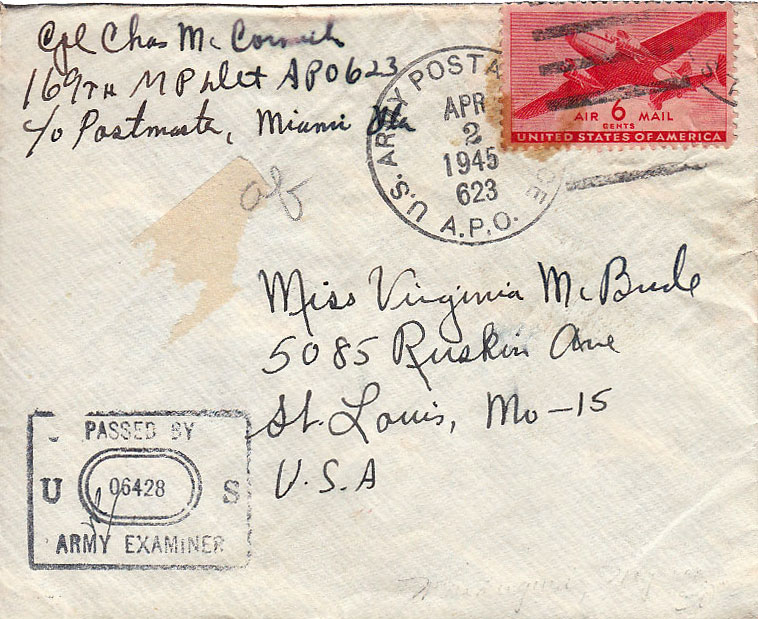 Cpl Chas McCormick
169TH MP Det APO 623
c/o Postmaster, Miami Fla
U.S. ARMY POSTAL
APR
2
1945
623
A.P.O.
AIR 6 MAIL
CENTS
UNITED STATES OF AMERICA
Miss Virginia McBride
5085 Ruskin Ave
St. Louis, Mo-15
U.S.A
PASSED BY
U 06428 S
ARMY EXAMINER